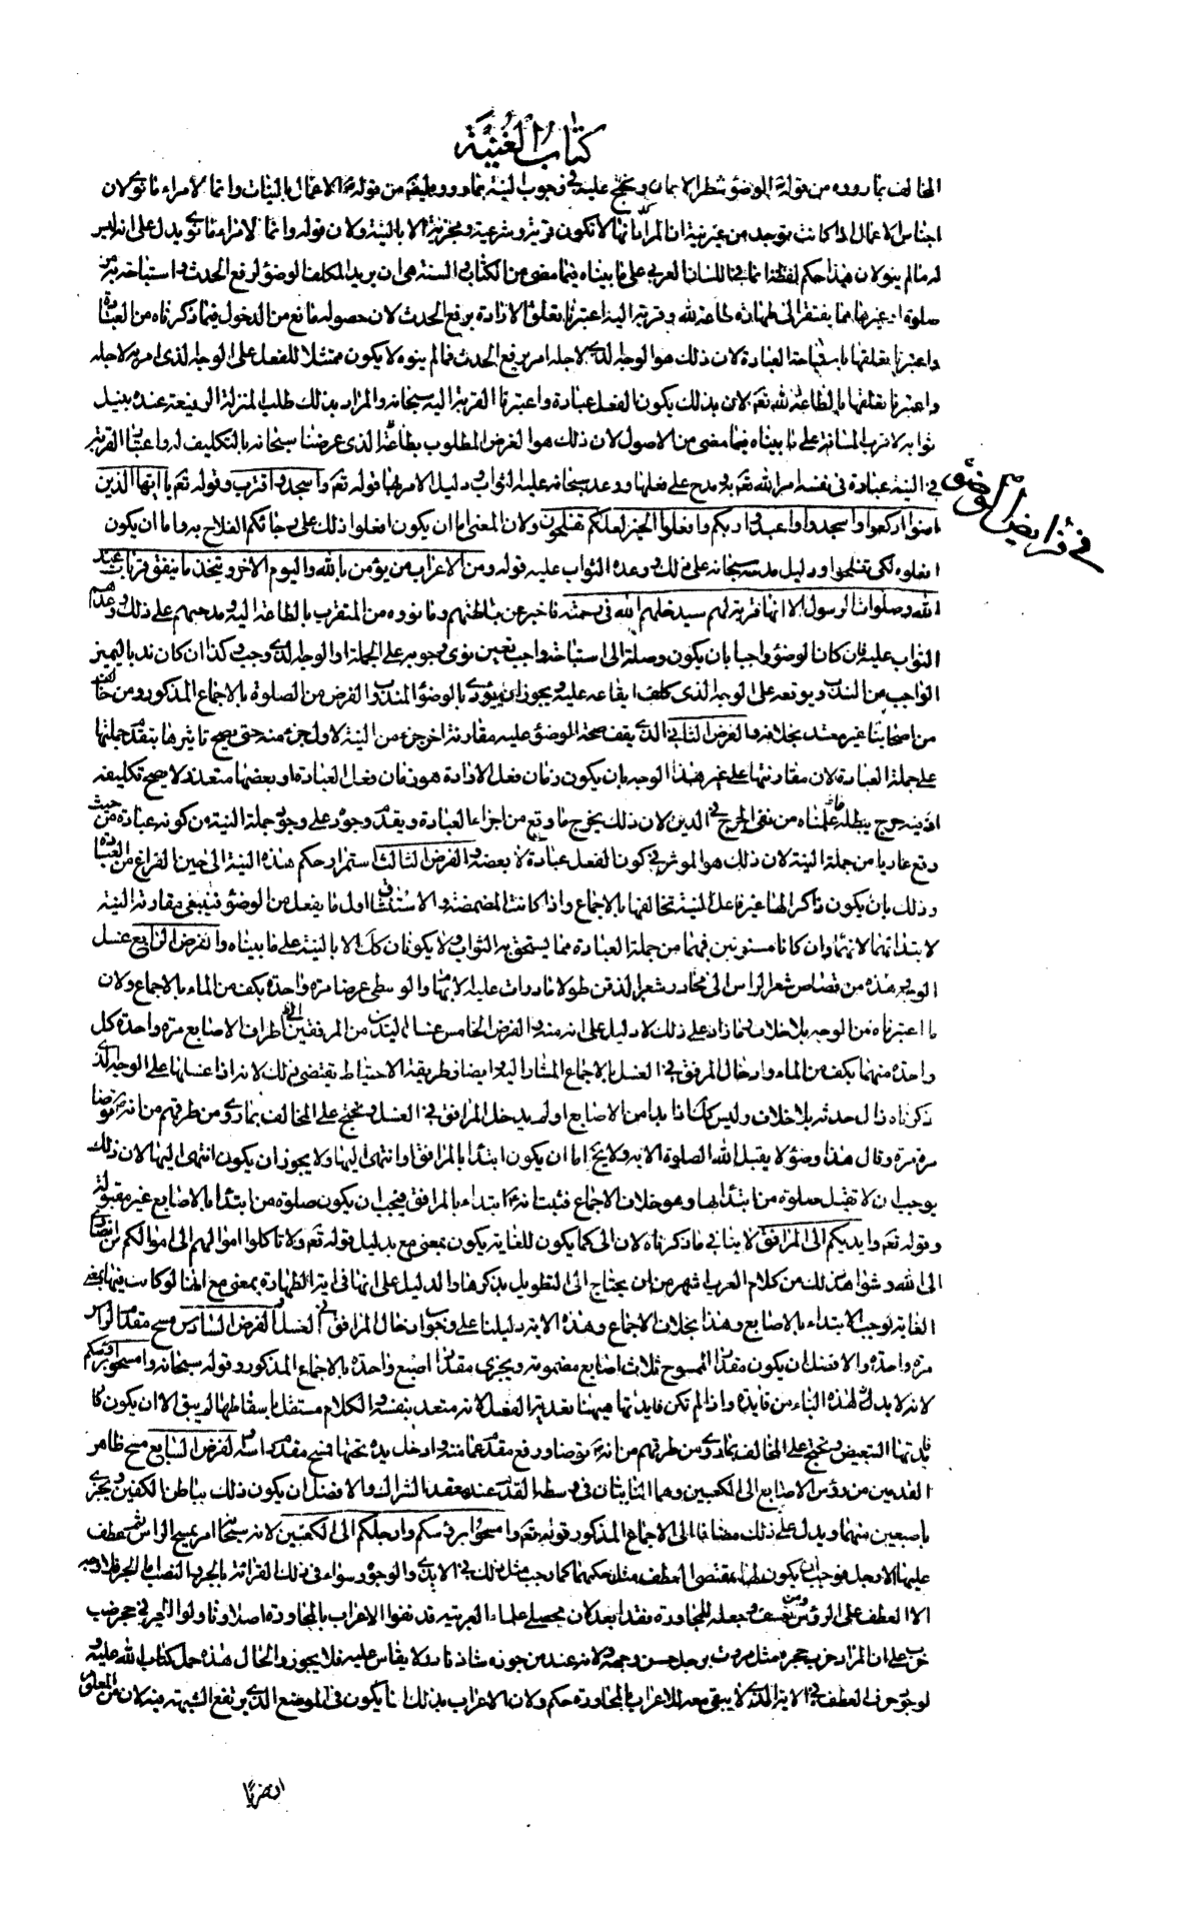 كتاب الغنية
المخالف بما رووه من قوله الوضؤ شطر الايمان ونحتج عليه في وجوب النية بما رووه ايضا من قوله الاعمال بالنيات وانما لامرء ما نوى لان
اجناس الاعمال اذا كانت توجد من غير نية ان المراد انها لا تكون قربة وشرعية ومجزية الا بالنية ولان قوله وانما لامرء ما نوى يدل على انه ليس
له ما لم ينو لان هذا حكم لفظة انما في اللسان العربي على ما بيناه فيما مضى من الكتاب والنية هي ان يريد المكلف الوضؤ لرفع الحدث واستباحة ما يريد من
صلوة او غيرها مما يفتقر الى طهارة طاعة لله وقربة اليه اعتبرنا تعلق الارادة برفع الحدث لان حصوله مانع من الدخول فيما ذكرناه من العبادة
واعتبرنا تعلقها باستباحة العبادة لان ذلك هو الوجه الذي لاجله امر برفع الحدث فما لم ينوه لا يكون ممتثلا للفعل على الوجه الذي امر به لاجله
واعتبرنا تعلقها بالطاعة لله تع لان بذلك يكون الفعل عبادة واعتبرنا القربة اليه سبحانه والمراد بذلك طلب المنزلة الرفيعة عنده بنيل
ثوابه لا قرب المسافة على ما بيناه فيما مضى من الاصول لان ذلك هو الغرض المطلوب بطاعته الذي عرضنا سبحانه بالتكليف له واعتبرنا القربة
في النية عبادة في نفسه امر الله تع به ومدح على فعلها ووعد سبحانه عليه الثواب ودليل الامر بها قوله تع واسجد واقترب وقوله تع يا ايها الذين
في فرايض الوضؤ
امنوا اركعوا واسجدوا واعبدوا ربكم وافعلوا الخير لعلكم تفلحون ولان المعنى اما ان يكون افعلوا ذلك على رجائكم الفلاح به واما ان يكون
افعلوه لكي تفلحوا ودليل مدحه سبحانه على ذلك ووعده الثواب عليه قوله ومن الاعراب من يؤمن بالله واليوم الاخر ويتخذ ما ينفق قربات عند
الله وصلوات الرسول الا انها قربة لهم سيدخلهم الله في رحمته فاخبر عن باطنهم وما نووه من التقرب بالطاعة اليه ومدحهم على ذلك ووعدهم
الثواب عليه فان كان الوضؤ واجبا بان يكون وصلة الى استباحة واجب تعين نوى وجوبه على الجملة او الوجه الذي وجب وكذا ان كان ندبا ليميز
الواجب من الندب ويوقعه على الوجه الذي كلف ايقاعه عليه ويجوز ان يؤدي بالوضؤ المندوب الفرض من الصلوة بالاجماع المذكور ومن خالف
من اصحابنا غير معتد بخلافه والفرض الثاني الذي يقف صحة الوضؤ عليه مقارنة اخر جزء من النية لاول جزء منه حتى يصح تاثيرها بتقدم جملتها
على جملة العبادة لان مقارنتها على غير هذا الوجه بان يكون زمان فعل الارادة هو زمان فعل العبادة او بعضها متعذر لا يصح تكليفه
او فيه حرج يبطله ما علمناه من نفي الحرج في الدين لان ذلك يخرج ما وقع من اجزاء العبادة ويقدم وجوده على وجود جملة النية من كونه عبادة من حيث
وقع عاريا من جملة النية لان ذلك هو الموثر في كون الفعل عبادة لا بعضه والفرض الثالث استمرار حكم هذه النية الى حين الفراغ من العبادة
وذلك بان يكون ذاكرا لها غير فاعل لنية تخالفها بالاجماع واذا كانت المضمضة والاستنشاق اول ما يفعل من الوضؤ فينبغي مقارنة النية
لابتدائهما لانهما وان كانا مسنونين فهما من جملة العبادة مما يستحق به الثواب ولا يكونان كذلك الا بالنية على ما بيناه والفرض الرابع غسل
الوجه وحده من قصاص شعر الراس الى محادر شعر الذقن طولا وما دارت عليه الابهام والوسطى عرضا مرة واحدة بكف من الماء بالاجماع ولان
ما اعتبرناه من الوجه بلا خلاف وما زاد على ذلك لا دليل على انه منه والفرض الخامس غسل اليدين من المرفقين الى اطراف الاصابع مرة واحدة كل
واحدة منهما بكف من الماء وادخال المرفق في الغسل بالاجماع المشار اليه وايضا فطريقة الاحتياط تقتضي ذلك لانه اذا غسلها على الوجه الذي
ذكرناه زال حدثه بلا خلاف وليس كذلك اذا بدا من الاصابع او لم يدخل المرافق في الغسل ونحتج على المخالف بما روي من طرقهم من انه توضا
مرة مرة وقال هذا وضؤ لا يقبل الله الصلوة الا به ولا يخ اما ان يكون ابتدا بالمرافق او انتهى اليها ولا يجوز ان يكون انتهى اليها لان ذلك
يوجب ان لا تقبل صلوة من ابتدا بها وهو خلاف الاجماع فثبت انه ابتداء بالمرافق فيجب ان يكون صلوة من ابتدا بالاصابع غير مقبولة
وقوله تع وايديكم الى المرافق لا ينافي ما ذكرناه لان الى كما يكون للغاية يكون بمعنى مع بدليل قوله تع ولا تاكلوا اموالهم الى اموالكم من انصاري
الى الله وشواهد ذلك من كلام العرب اشهر من ان يحتاج الى التطويل بذكرها والدليل على انها في اية الطهارة بمعنى مع انها لو كانت فيها بمعنى
الغاية لوجب الابتداء بالاصابع وهذا بخلاف الاجماع وهذه الاية دليلنا على وجوب ادخال المرافق في الغسل والفرض السادس مسح مقدم الراس
مرة واحدة والافضل ان يكون مقدار الممسوح ثلاث اصابع مضمومة ويجزي مقدار اصبع واحدة بالاجماع المذكور وقوله سبحانه وامسحوا برؤسكم
لانه لا بد لهذه الباء من فايدة واذا لم تكن فايدتها هيهنا تعدية الفعل لانه متعد بنفسه والكلام مستقل باسقاطها لم يبق الا ان يكون فا
يدتها التبعيض ونحتج على المخالف بما روي من طرقهم من انه توضا ورفع مقدم عمامته وادخل يده تحتها فمسح مقدم راسه والفرض السابع مسح ظاهر
القدمين من رؤس الاصابع الى الكعبين وهما النابتان في وسط القدم عند معقد الشراك والافضل ان يكون ذلك بباطن الكفين ويجزي
باصبعين منهما ويدل على ذلك مضافا الى الاجماع المذكور قوله تع وامسحوا برؤسكم وارجلكم الى الكعبين لانه سبحانه امر بمسح الراس ثم عطف
عليها الارجل فوجب ان يكون لها بمقتضى العطف مثل حكمها كما وجب مثل ذلك في الايدي والوجوه وسواء في ذلك القرائة بالجر والنصب اما الجر فلا وجه
الا العطف على الرؤس ومن تعسف وجعله للمجاورة فقد ابعد لان محصلي علماء العربية قد نفوا الاعراب بالمجاورة اصلا وتاولوا الجر في جحر ضب
خرب على ان المراد خرب جحره مثل مررت برجل حسن وجهه ولانه عند من جوزه شاذ نادر لا يقاس عليه فلا يجوز والحال هذه حمل كتاب الله عليه و
لوجود حرف العطف في الاية الذي لا يبقى معه للاعراب بالمجاورة حكم ولان الاعراب بذلك انما يكون في الموضع الذي يرتفع الشبهة فيه لان من المعلوم